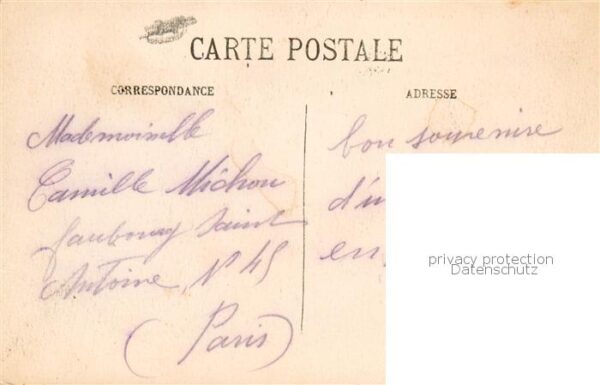 CARTE POSTALE
CORRESPONDANCE
ADRESSE
Mademoiselle
Camille Michou
faubourg Saint
Antoine N° 45
(Paris)
bon souvenire
privacy protection
Datenschutz